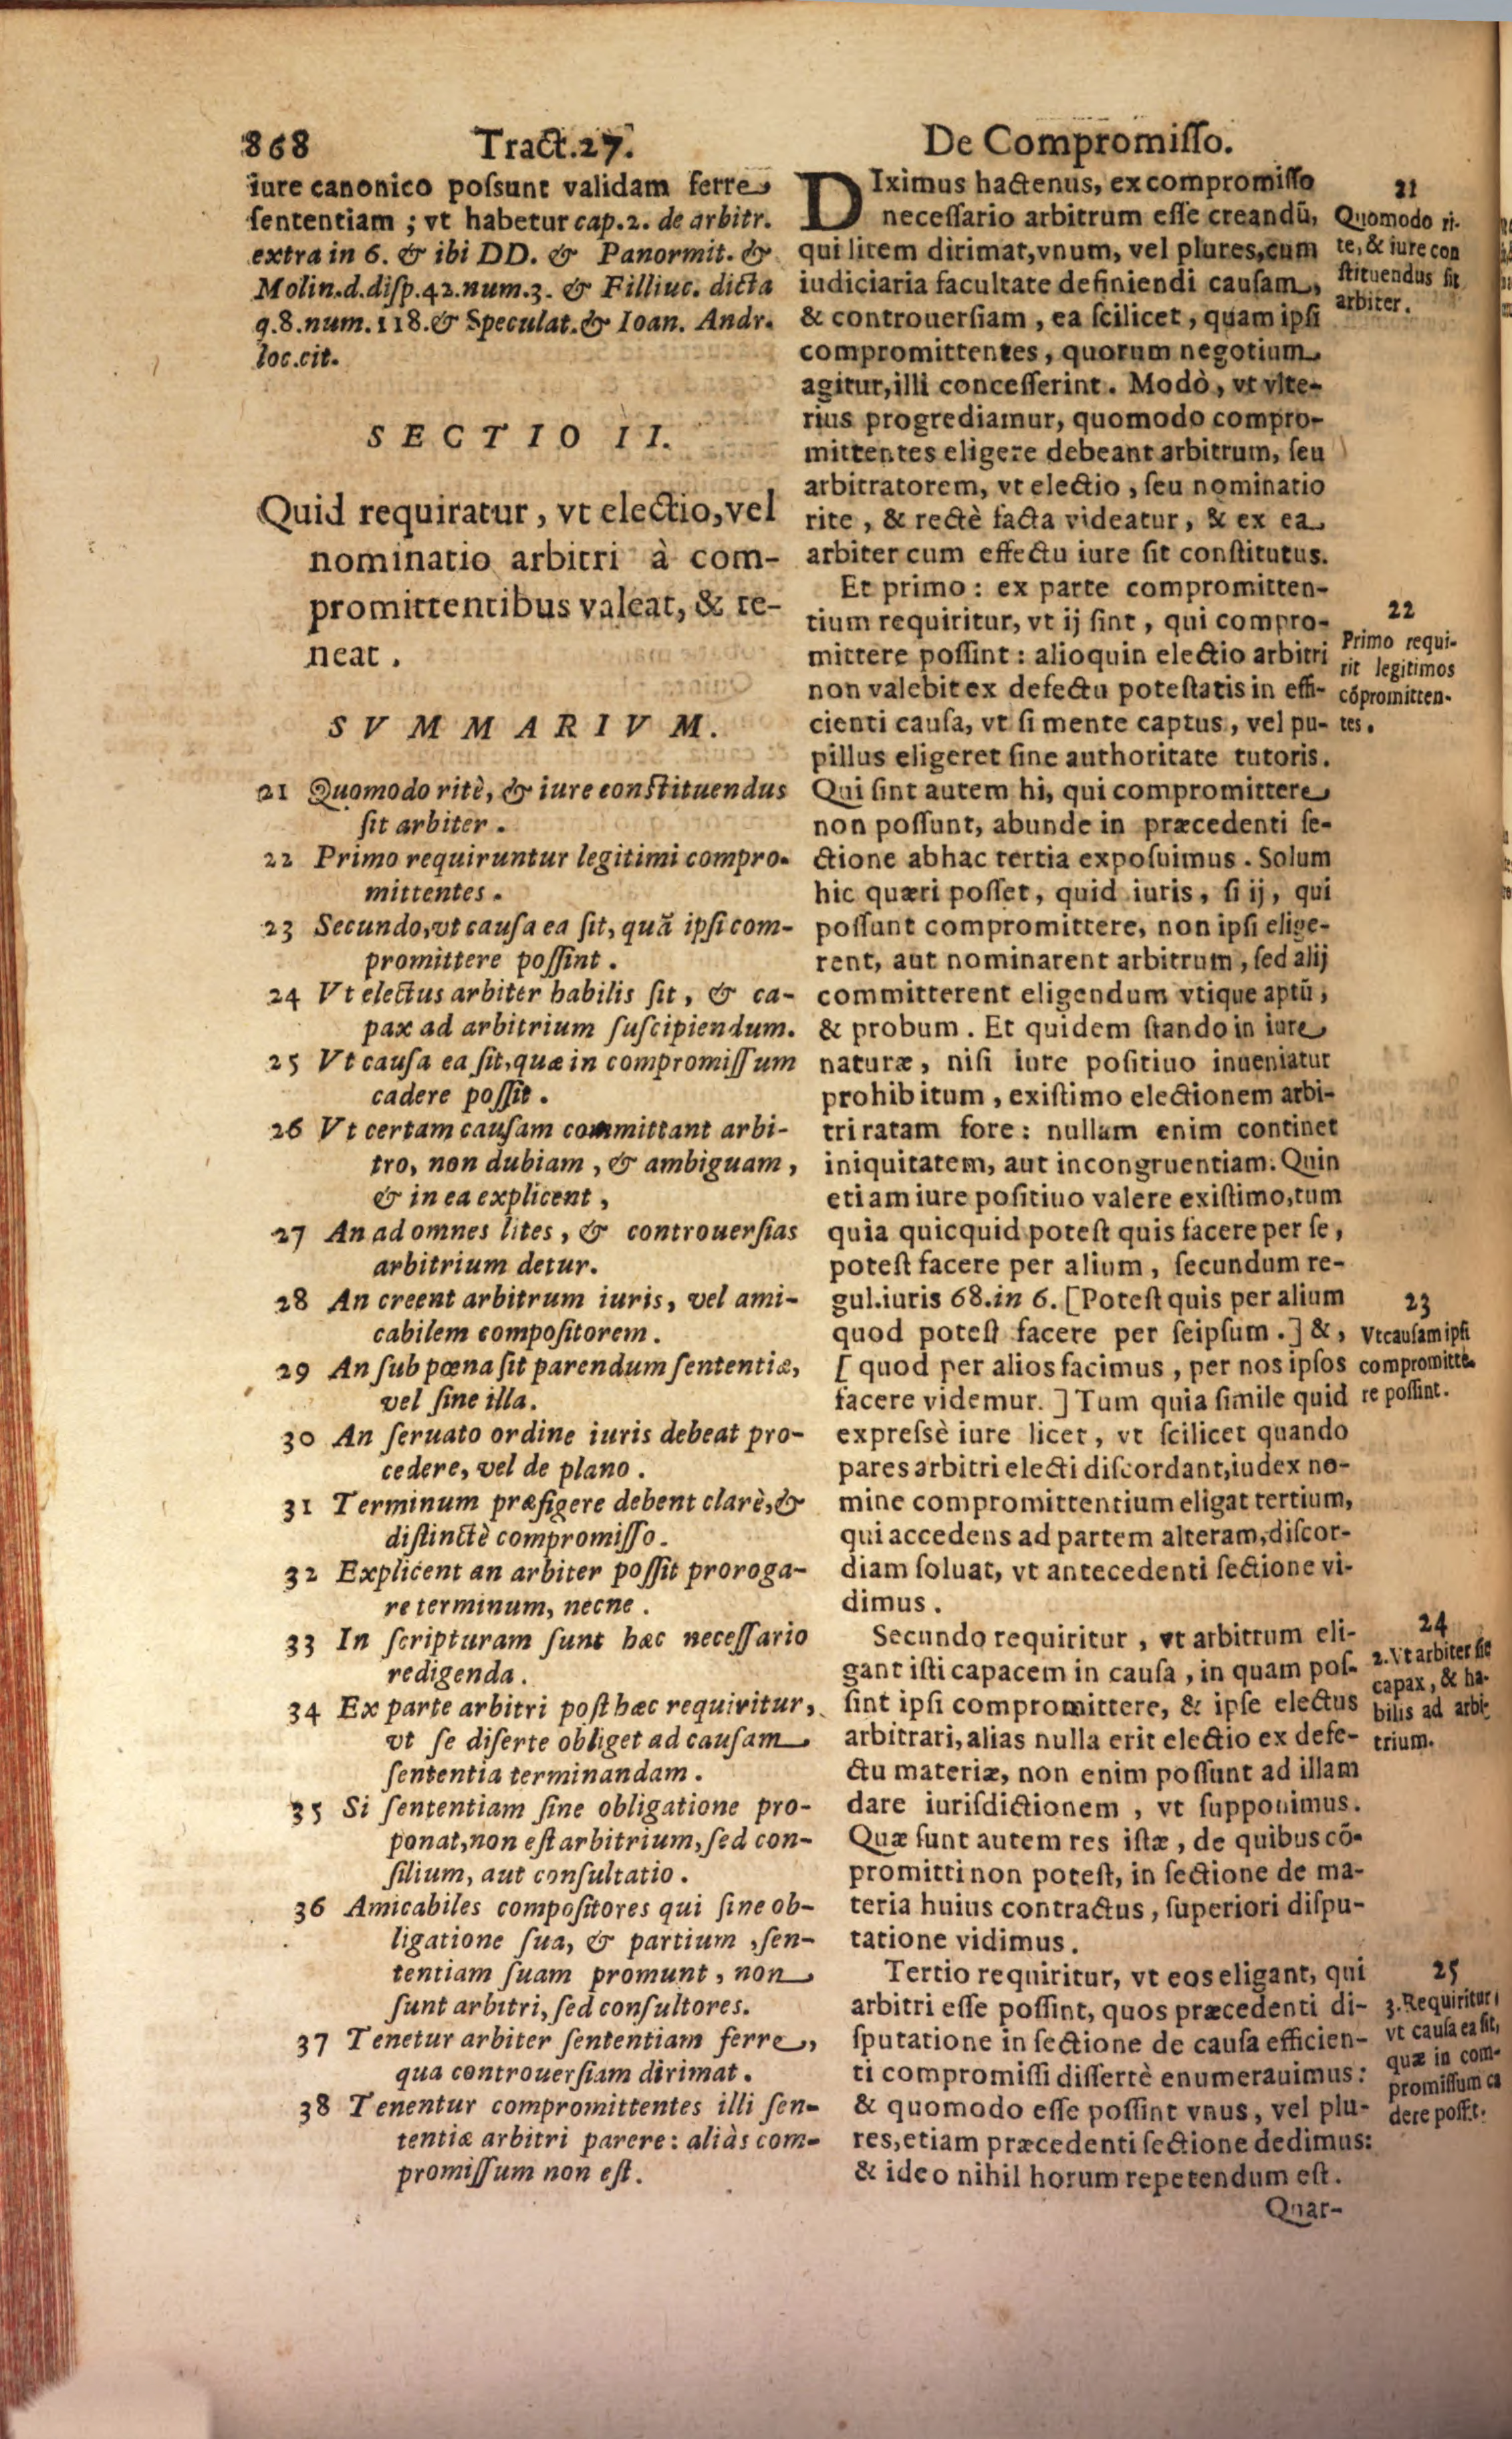 868 Tract.27. De Compromiſſo.
iure canonico poſsunt validam ferre
ſententiam ; vt habetur cap.2. de arbitr.
extra in 6. & ibi DD. & Panormit. &
Molin.d.diſp.42.num.3. & Filliuc. dicta
q.8.num.118.& Speculat.& Ioan. Andr.
loc.cit.
SECTIO II.
Quid requiratur, vt electio,vel
nominatio arbitri à com-
promittentibus valeat, & te-
neat.
SVMMARIVM.
21 Quomodo ritè, & iure conſtituendus
ſit arbiter.
22 Primo requiruntur legitimi compro-
mittentes.
23 Secundo,vt cauſa ea ſit, quã ipſi com-
promittere poſſint.
24 Vt electus arbiter habilis ſit, & ca-
pax ad arbitrium ſuſcipiendum.
25 Vt cauſa ea ſit,quæ in compromiſſum
cadere poſſit.
26 Vt certam cauſam committant arbi-
tro, non dubiam, & ambiguam,
& in ea explicent,
27 An ad omnes lites, & controuerſias
arbitrium detur.
28 An creent arbitrum iuris, vel ami-
cabilem compoſitorem.
29 An ſub pœna ſit parendum ſententiæ,
vel ſine illa.
30 An ſeruato ordine iuris debeat pro-
cedere, vel de plano.
31 Terminum præfigere debent clarè,&
diſtinctè compromiſſo.
32 Explicent an arbiter poſſit proroga-
re terminum, necne.
33 In ſcripturam ſunt hæc neceſſario
redigenda.
34 Ex parte arbitri poſt hæc requiritur,
vt ſe diſerte obliget ad cauſam
ſententia terminandam.
35 Si ſententiam ſine obligatione pro-
ponat,non eſt arbitrium,ſed con-
ſilium, aut conſultatio.
36 Amicabiles compoſitores qui ſine ob-
ligatione ſua, & partium ,ſen-
tentiam ſuam promunt, non
ſunt arbitri, ſed conſultores.
37 Tenetur arbiter ſententiam ferre,
qua controuerſiam dirimat.
38 Tenentur compromittentes illi ſen-
tentiæ arbitri parere: aliàs com-
promiſſum non eſt.
DIximus hactenus, ex compromiſſo
neceſſario arbitrum eſſe creandũ,
qui litem dirimat,vnum, vel plures,cum
iudiciaria facultate definiendi cauſam,
& controuerſiam, ea ſcilicet, quam ipſi
compromittentes, quorum negotium
agitur,illi conceſſerint. Modò, vt vlte-
rius progrediamur, quomodo compro-
mittentes eligere debeant arbitrum, ſeu
arbitratorem, vt electio, ſeu nominatio
rite, & rectè facta videatur, & ex ea
arbiter cum effectu iure ſit conſtitutus.
Et primo: ex parte compromitten-
tium requiritur, vt ij ſint, qui compro-
mittere poſſint: alioquin electio arbitri
non valebit ex defectu poteſtatis in effi-
cienti cauſa, vt ſi mente captus, vel pu-
pillus eligeret ſine authoritate tutoris.
Qui ſint autem hi, qui compromittere
non poſſunt, abunde in præcedenti ſe-
ctione ab hac tertia expoſuimus. Solum
hic quæri poſſet, quid iuris, ſi ij, qui
poſſunt compromittere, non ipſi elige-
rent, aut nominarent arbitrum, ſed alij
committerent eligendum vtique aptũ,
& probum. Et quidem ſtando in iure
naturæ, niſi iure poſitiuo inueniatur
prohibitum, exiſtimo electionem arbi-
tri ratam fore: nullam enim continet
iniquitatem, aut incongruentiam. Quin
etiam iure poſitiuo valere exiſtimo,tum
quia quicquid poteſt quis facere per ſe,
poteſt facere per alium, ſecundum re-
gul.iuris 68.in 6. [Poteſt quis per alium
quod poteſt facere per ſeipſum.] &,
[quod per alios facimus, per nos ipſos
facere videmur.] Tum quia ſimile quid
expreſsè iure licet, vt ſcilicet quando
pares arbitri electi diſcordant,iudex no-
mine compromittentium eligat tertium,
qui accedens ad partem alteram,diſcor-
diam ſoluat, vt antecedenti ſectione vi-
dimus.
Secundo requiritur, vt arbitrum eli-
gant iſti capacem in cauſa, in quam poſ-
ſint ipſi compromittere, & ipſe electus
arbitrari, alias nulla erit electio ex defe-
ctu materiæ, non enim poſſunt ad illam
dare iuriſdictionem, vt ſupponimus.
Quæ ſunt autem res iſtæ, de quibus cõ-
promitti non poteſt, in ſectione de ma-
teria huius contractus, ſuperiori diſpu-
tatione vidimus.
Tertio requiritur, vt eos eligant, qui
arbitri eſſe poſſint, quos præcedenti di-
ſputatione in ſectione de cauſa efficien-
ti compromiſſi diſſertè enumerauimus:
& quomodo eſſe poſſint vnus, vel plu-
res,etiam præcedenti ſectione dedimus:
& ideo nihil horum repetendum eſt.
Quar-
21
Quomodo ri-
te, & iure con
ſtituendus ſit
arbiter.
22
Primo requi-
rit legitimos
cõpromitten-
tes.
23
Vt cauſam ipſi
compromitte-
re poſſint.
24
2.Vt arbiter ſit
capax, & ha-
bilis ad arbi-
trium.
25
3.Requiritur,
vt cauſa ea ſit,
quæ in com-
promiſſum ca
dere poſſit.